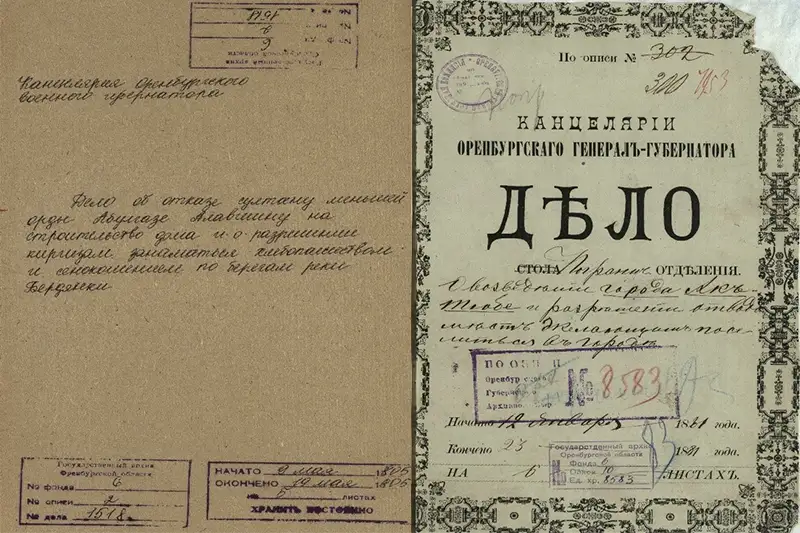 Канцелярия оренбургского
военного губернатора
Дело об отказе султану меньшей
орды Абулгазе Алавшину на
строительство дома и о разрешении
киргизам заниматься хлебопашеством
и сенокошением по берегам реки
Бердянки
Государственный архив
Оренбургской области
№ фонда 6
№ описи 2
№ дела 1518
НАЧАТО 9 мая 1805
ОКОНЧЕНО 19 мая 1805
на 5 листах
ХРАНИТЬ ПОСТОЯННО
По описи № 302
300
КАНЦЕЛЯРІИ
ОРЕНБУРГСКАГО ГЕНЕРАЛЪ-ГУБЕРНАТОРА
ДѢЛО
СТОЛА Погранич ОТДѢЛЕНІЯ.
О возведении города Акъ-
Тюбе и разрешении отвода
мѣстъ желающимъ посе-
литься въ городѣ
ПО ОПИ
Оренбур
Губерн
Архивн
№ 8583
Начато 12 января 1881 года.
Кончено 23 1881 года.
НА 6 ЛИСТАХЪ.
Государственный архив
Оренбургской области
Фонд 6
Опись 10
Ед. хр. 8583